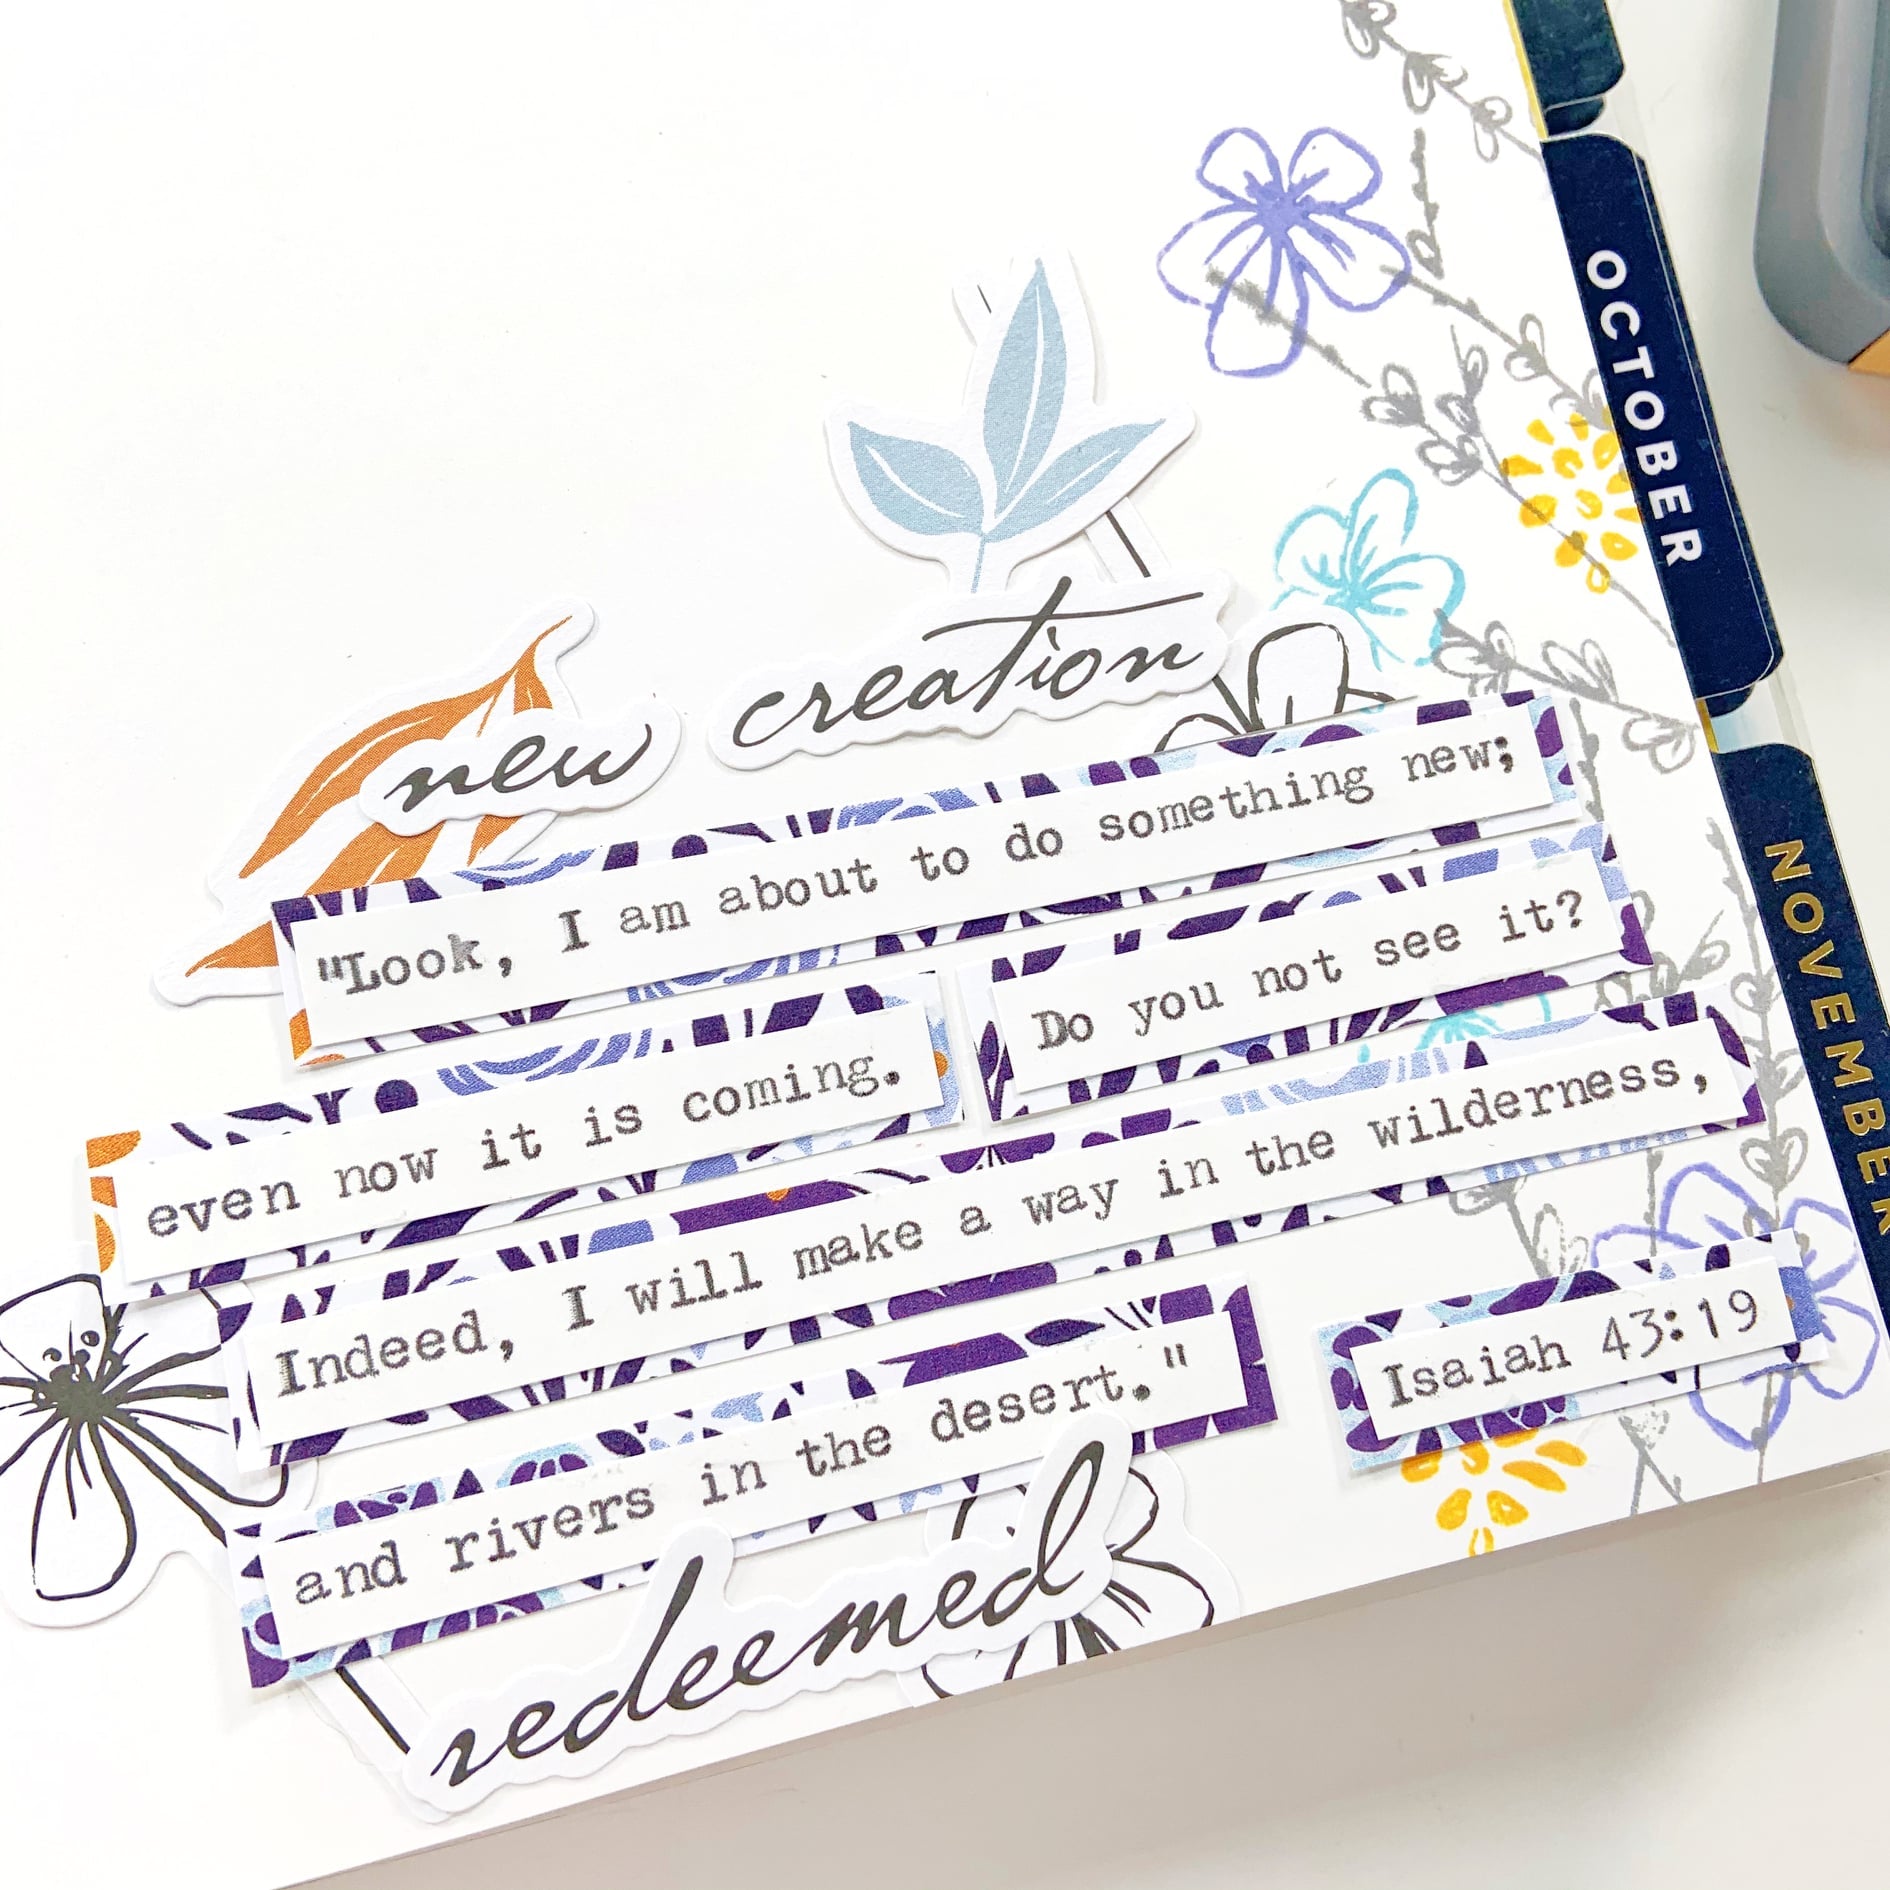 new creation
"Look, I am about to do something new;
even now it is coming. Do you not see it?
Indeed, I will make a way in the wilderness,
and rivers in the desert."
Isaiah 43:19
redeemed
OCTOBER
NOVEMBER